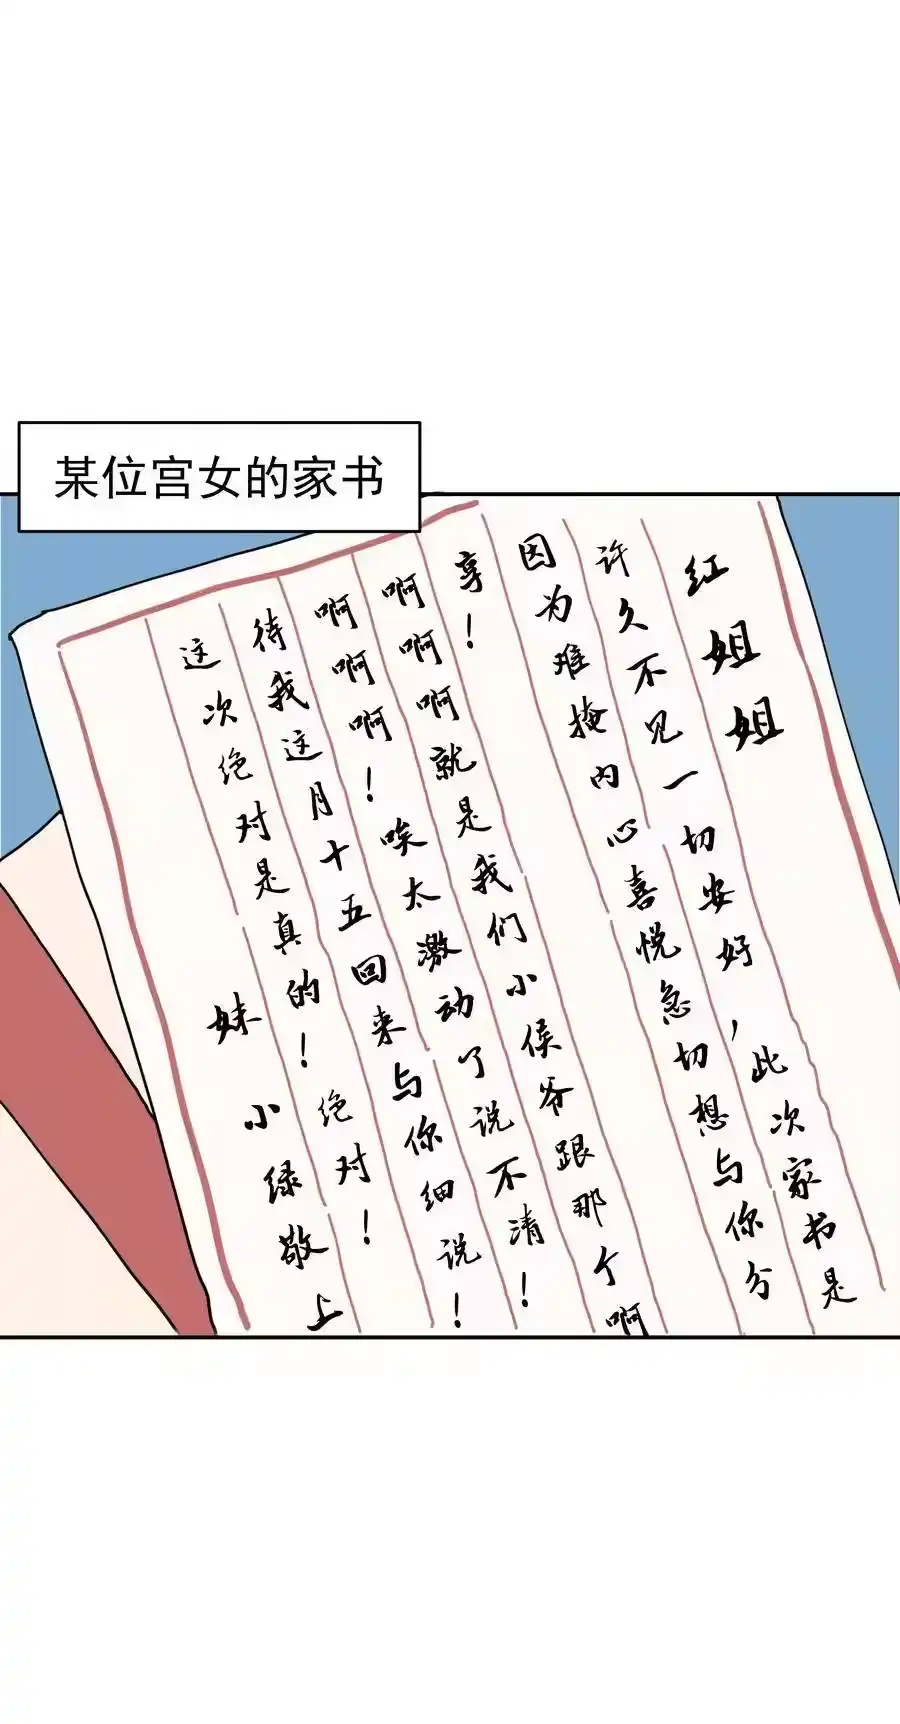 某位宫女的家书
红姐姐
许久不见一切安好，此次家书是
因为难掩内心喜悦急切想与你分
享！
啊啊啊就是我们小侯爷跟那个啊
啊啊啊！唉太激动了说不清！
待我这月十五回来与你细说！
这次绝对是真的！绝对！
妹小绿敬上